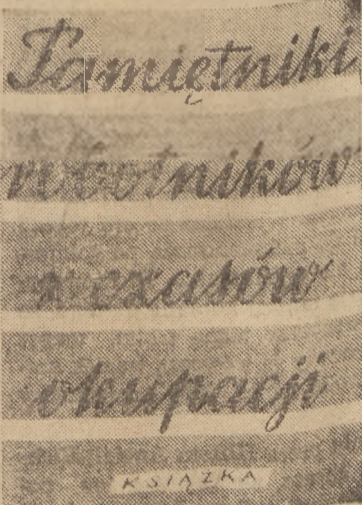 Pamiętniki
robotników
z czasów
okupacji
KSIĄZKA